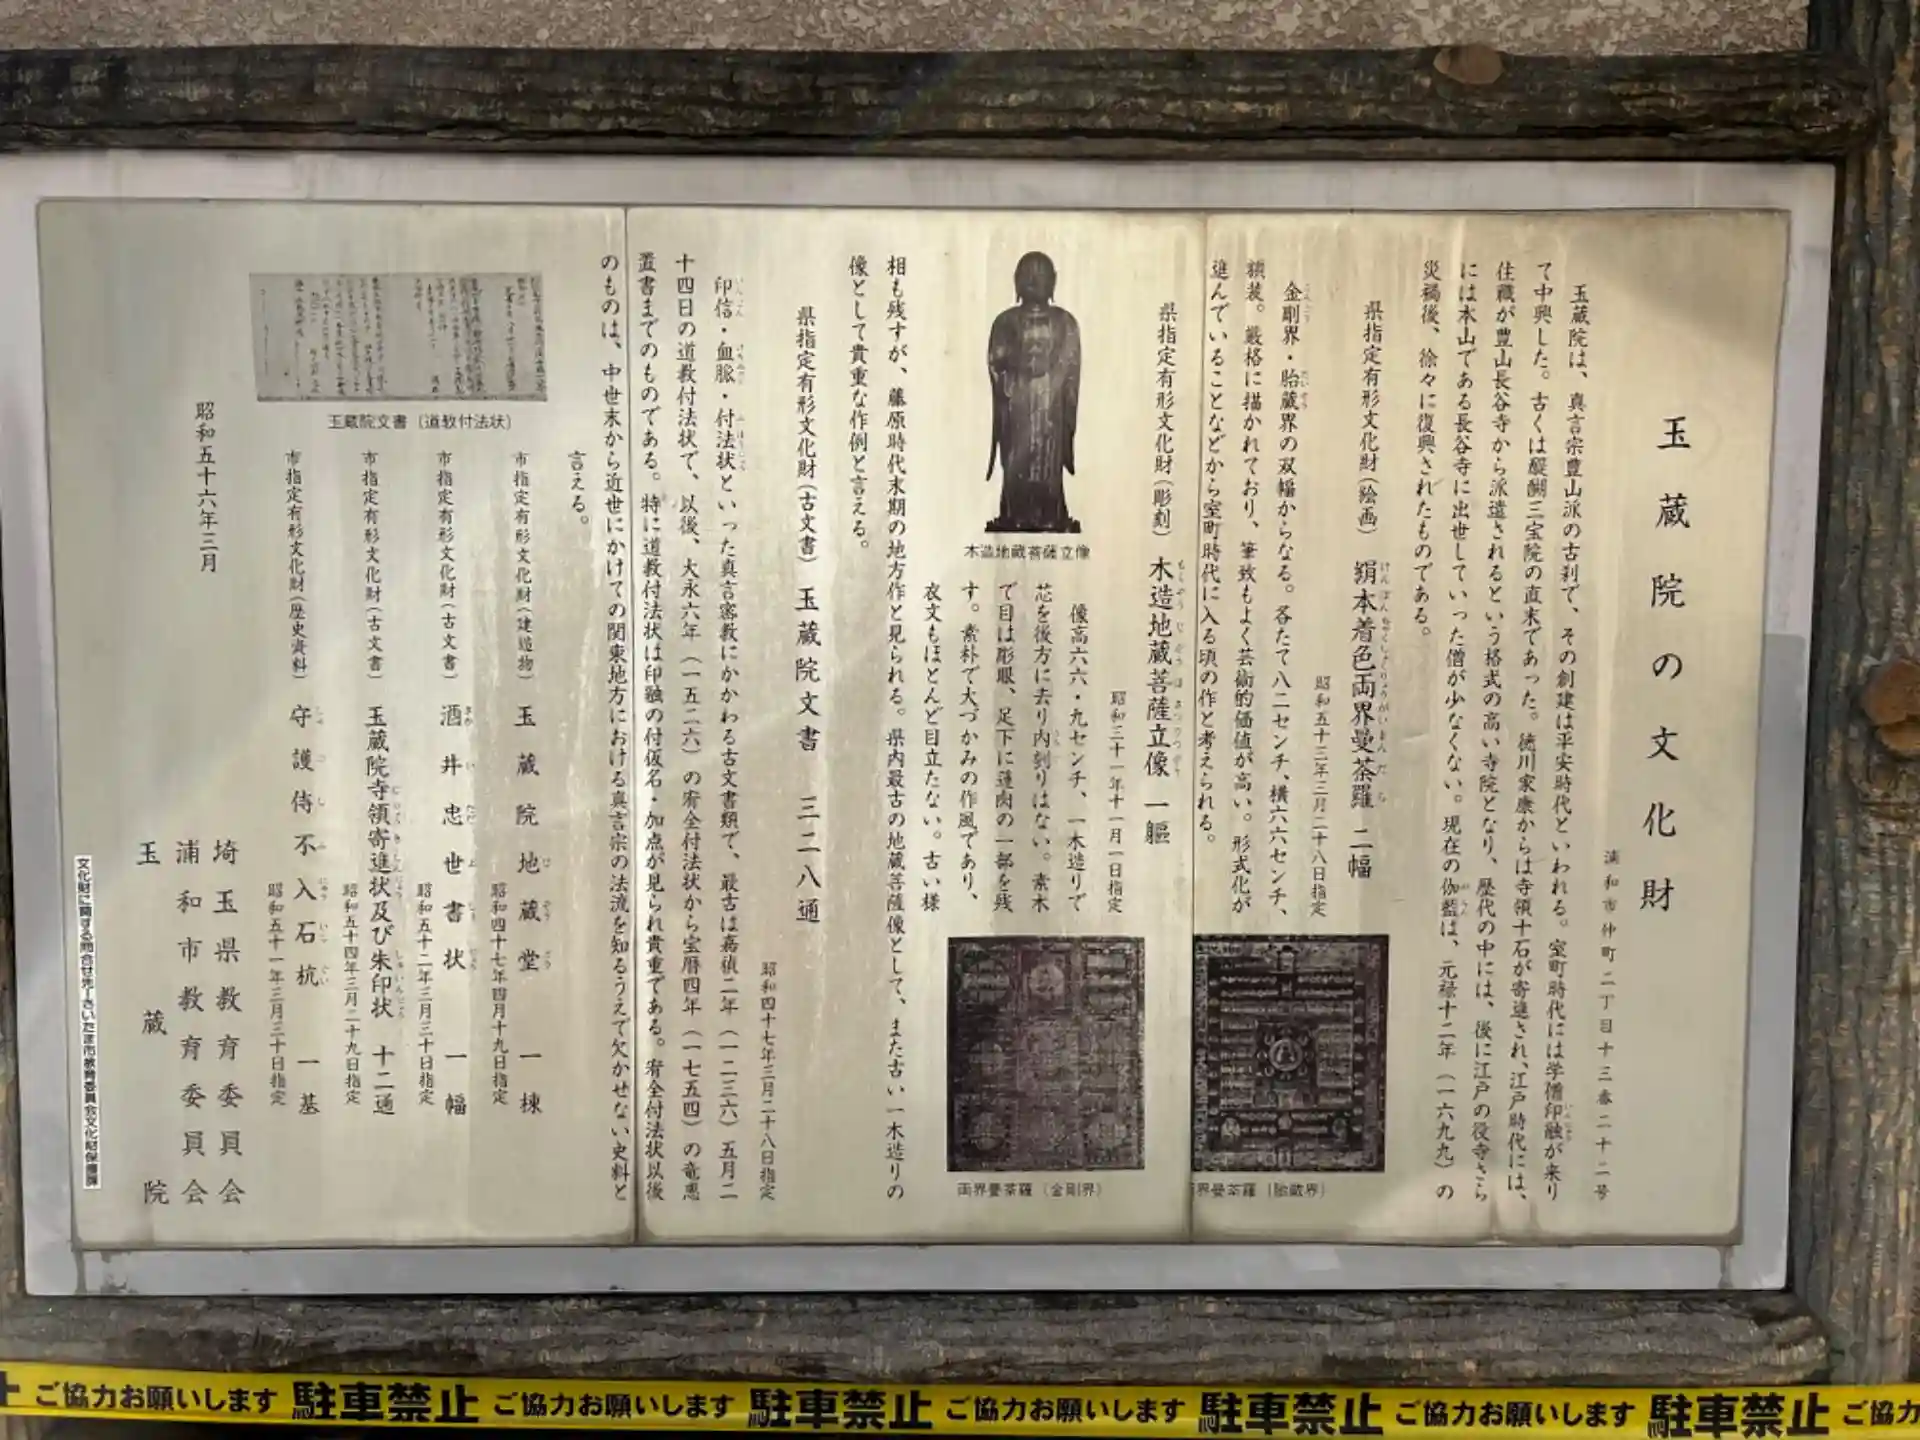 玉蔵院の文化財
浦和市仲町二丁目十三番二十二号
玉蔵院は、真言宗豊山派の古刹で、その創建は平安時代といわれる。室町時代には学僧印融が来り
て中興した。古くは醍醐三宝院の直末であった。徳川家康からは寺領十石が寄進され、江戸時代には、
住職が豊山長谷寺から派遣されるという格式の高い寺院となり、歴代の中には、後に江戸の役寺さら
には本山である長谷寺に出世していった僧が少なくない。現在の伽藍は、元禄十二年（一六九九）の
災禍後、徐々に復興されたものである。
県指定有形文化財（絵画） 絹本着色両界曼荼羅 二幅
昭和五十三年三月二十八日指定
金剛界・胎蔵界の双幅からなる。各たて八二センチ、横六六センチ、
額装。厳格に描かれており、筆致もよく芸術的価値が高い。形式化が
進んでいることなどから室町時代に入る頃の作と考えられる。
両界曼荼羅（胎蔵界）
県指定有形文化財（彫刻） 木造地蔵菩薩立像 一軀
昭和三十一年十一月一日指定
木造地蔵菩薩立像
像高六六・九センチ、一木造りで
芯を後方に去り内刳りはない。素木
で目は彫眼、足下に蓮肉の一部を残
す。素朴で大づかみの作風であり、
衣文もほとんど目立たない。古い様
相も残すが、藤原時代末期の地方作と見られる。県内最古の地蔵菩薩像として、また古い一木造りの
像として貴重な作例と言える。
両界曼荼羅（金剛界）
県指定有形文化財（古文書） 玉蔵院文書 三二八通
昭和四十七年三月二十八日指定
印信・血脈・付法状といった真言密教にかかわる古文書類で、最古は嘉禎二年（一二三六）五月二
十四日の道教付法状で、以後、大永六年（一五二六）の宥全付法状から宝暦四年（一七五四）の竜悪
置書までのものである。特に道教付法状は印融の付仮名・加点が見られ貴重である。宥全付法状以後
のものは、中世末から近世にかけての関東地方における真言宗の法流を知るうえで欠かせない史料と
言える。
玉蔵院文書（道教付法状）
市指定有形文化財（建造物） 玉蔵院地蔵堂 一棟
昭和四十七年四月十九日指定
市指定有形文化財（古文書） 酒井忠世書状 一幅
昭和五十二年三月三十日指定
市指定有形文化財（古文書） 玉蔵院寺領寄進状及び朱印状 十二通
昭和五十四年三月二十九日指定
市指定有形文化財（歴史資料） 守護侍不入石杭 一基
昭和五十一年三月三十日指定
昭和五十六年三月
埼玉県教育委員会
浦和市教育委員会
玉蔵院
文化財に関する問合せ先ーさいたま市教育委員会文化財保護課
止 ご協力お願いします 駐車禁止 ご協力お願いします 駐車禁止 ご協力お願いします 駐車禁止 ご協力お願いします 駐車禁止 ご協力